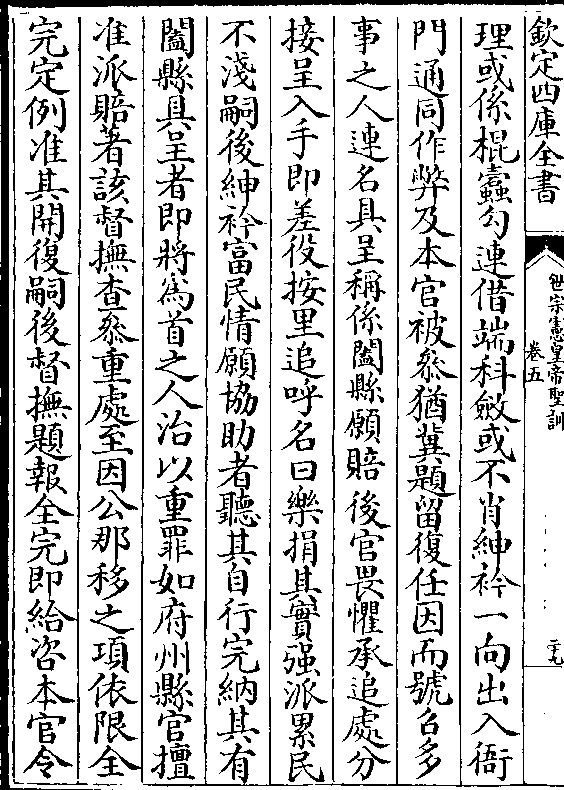 欽定四庫全書
世宗憲皇帝聖訓
卷五
二十九
理或係棍蠹勾連借端科斂或不肖紳衿一向出入衙
門通同作弊及本官被叅猶冀題留復任因而號召多
事之人連名具呈稱係闔縣願賠後官畏懼承追處分
接呈入手即差役按里追呼名曰樂捐其實强派累民
不淺嗣後紳衿富民情願協助者聽其自行完納其有
闔縣具呈者即將為首之人治以重罪如府州縣官擅
准派賠著該督撫查叅重處至因公那移之項依限全
完定例准其開復嗣後督撫題報全完即給咨本官令